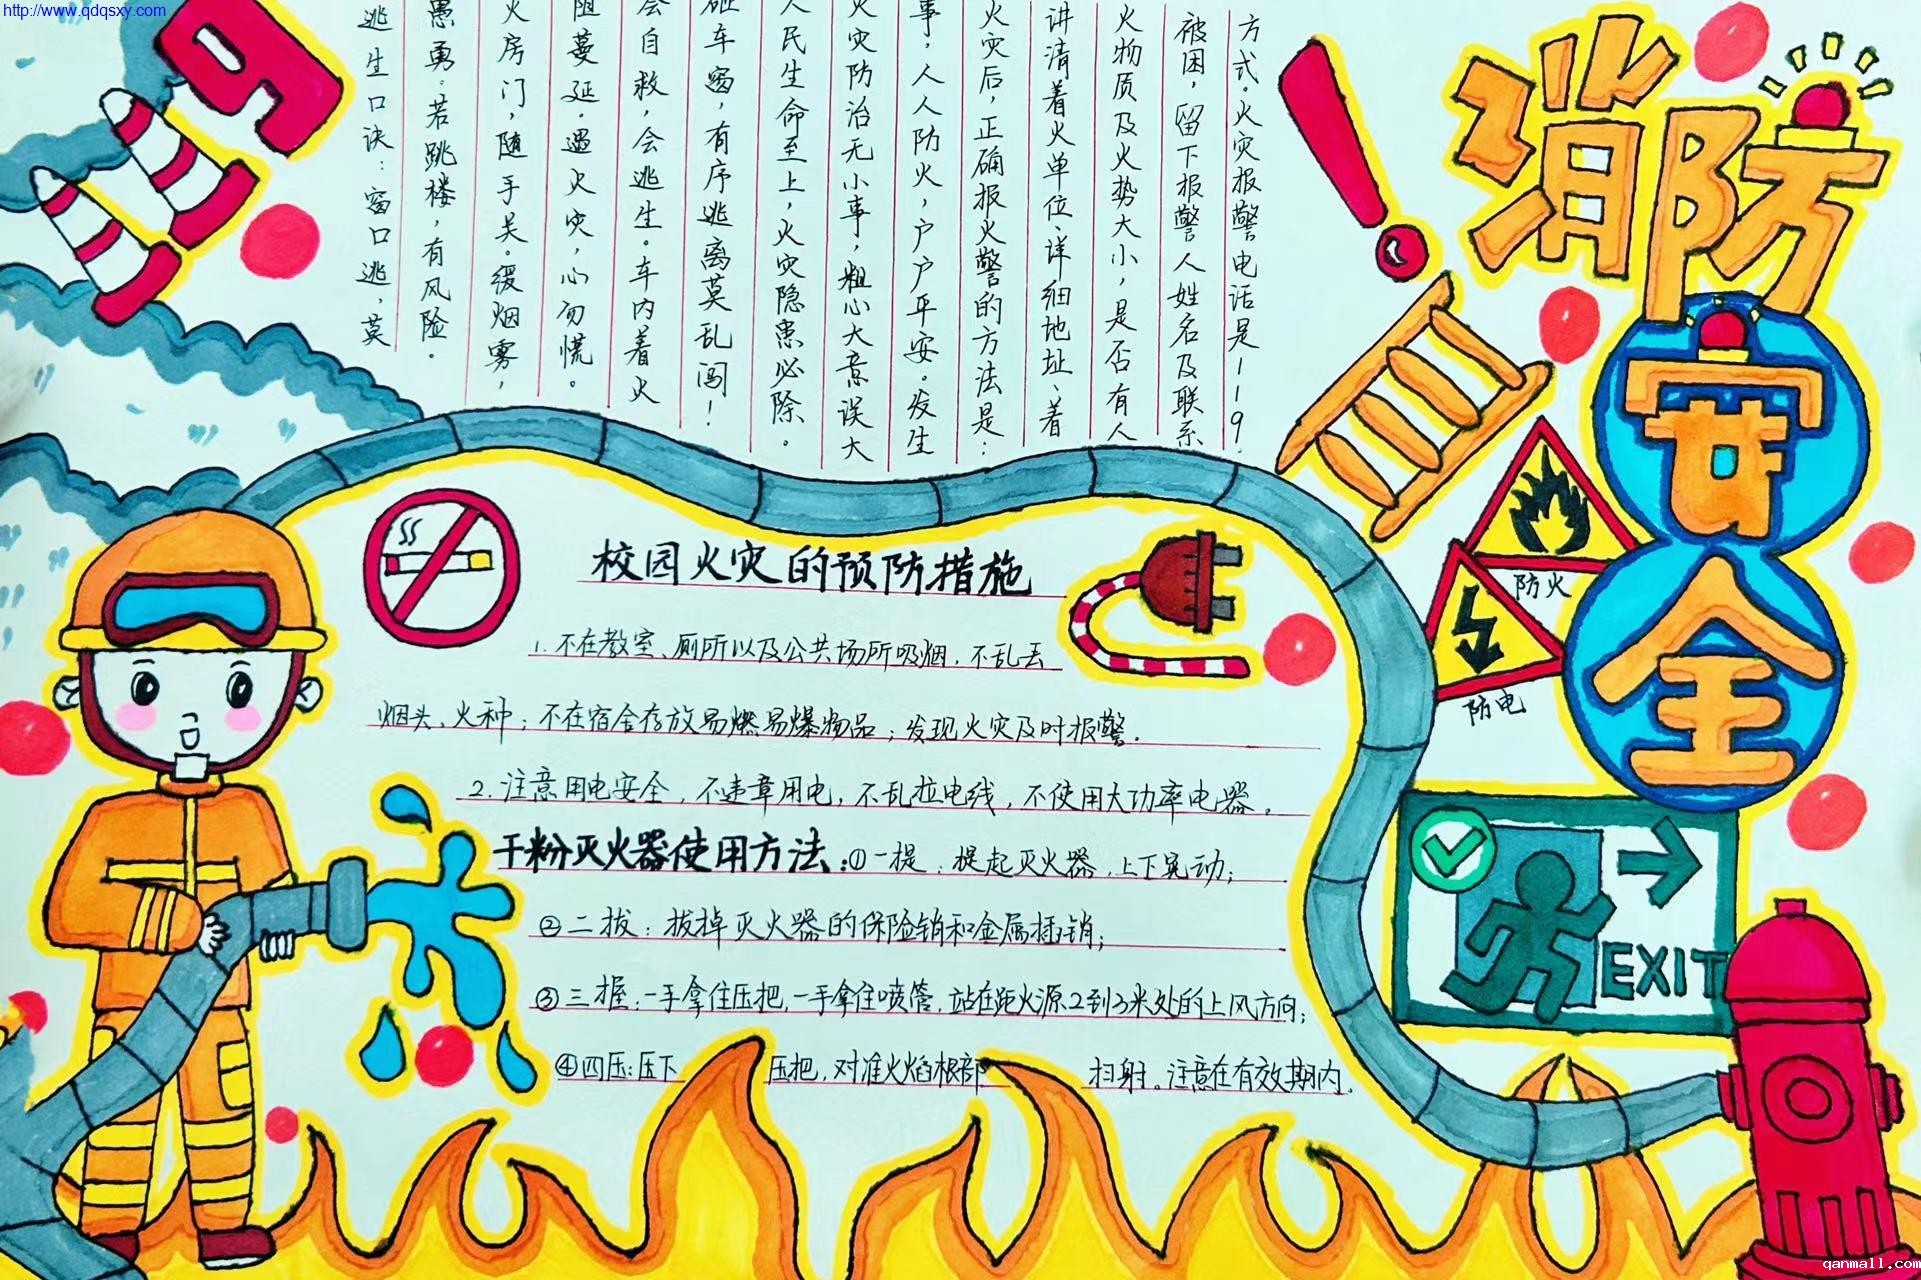 http://www.qdqsxy.com
消防
安
全
119
逃生口诀：窗口逃，莫
愚勇。若跳楼，有风险。
火房门，随手关。缓烟雾，
阻蔓延。遇火灾，心勿慌。
会自救，会逃生。车内着火
砸车窗，有序逃离莫乱闯！
人民生命至上，火灾隐患必除。
火灾防治无小事，粗心大意误大
事，人人防火，户户平安。发生
火灾后，正确报火警的方法是：
讲清着火单位、详细地址、着
火物质及火势大小，是否有人
被困，留下报警人姓名及联系
方式。火灾报警电话是119.
校园火灾的预防措施
1.不在教室、厕所以及公共场所吸烟，不乱丢
烟头、火种；不在宿舍存放易燃易爆物品；发现火灾及时报警。
2.注意用电安全，不违章用电，不乱拉电线，不使用大功率电器。
干粉灭火器使用方法：①一提：提起灭火器，上下晃动；
②二拔：拔掉灭火器的保险销和金属插销；
③三握：一手拿住压把，一手拿住喷管，站在距火源2到3米处的上风方向；
④四压：压下压把，对准火焰根部扫射。注意在有效期内.
防火
防电
EXIT
qanmall.com